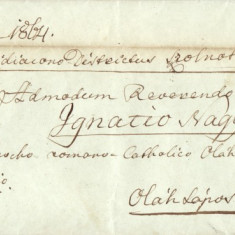 1814.
diacono Districtus Rolnot
Admodum Reverendo
Ignatio Nag
rocho romano Catholico Oláh
Oláh Lápos